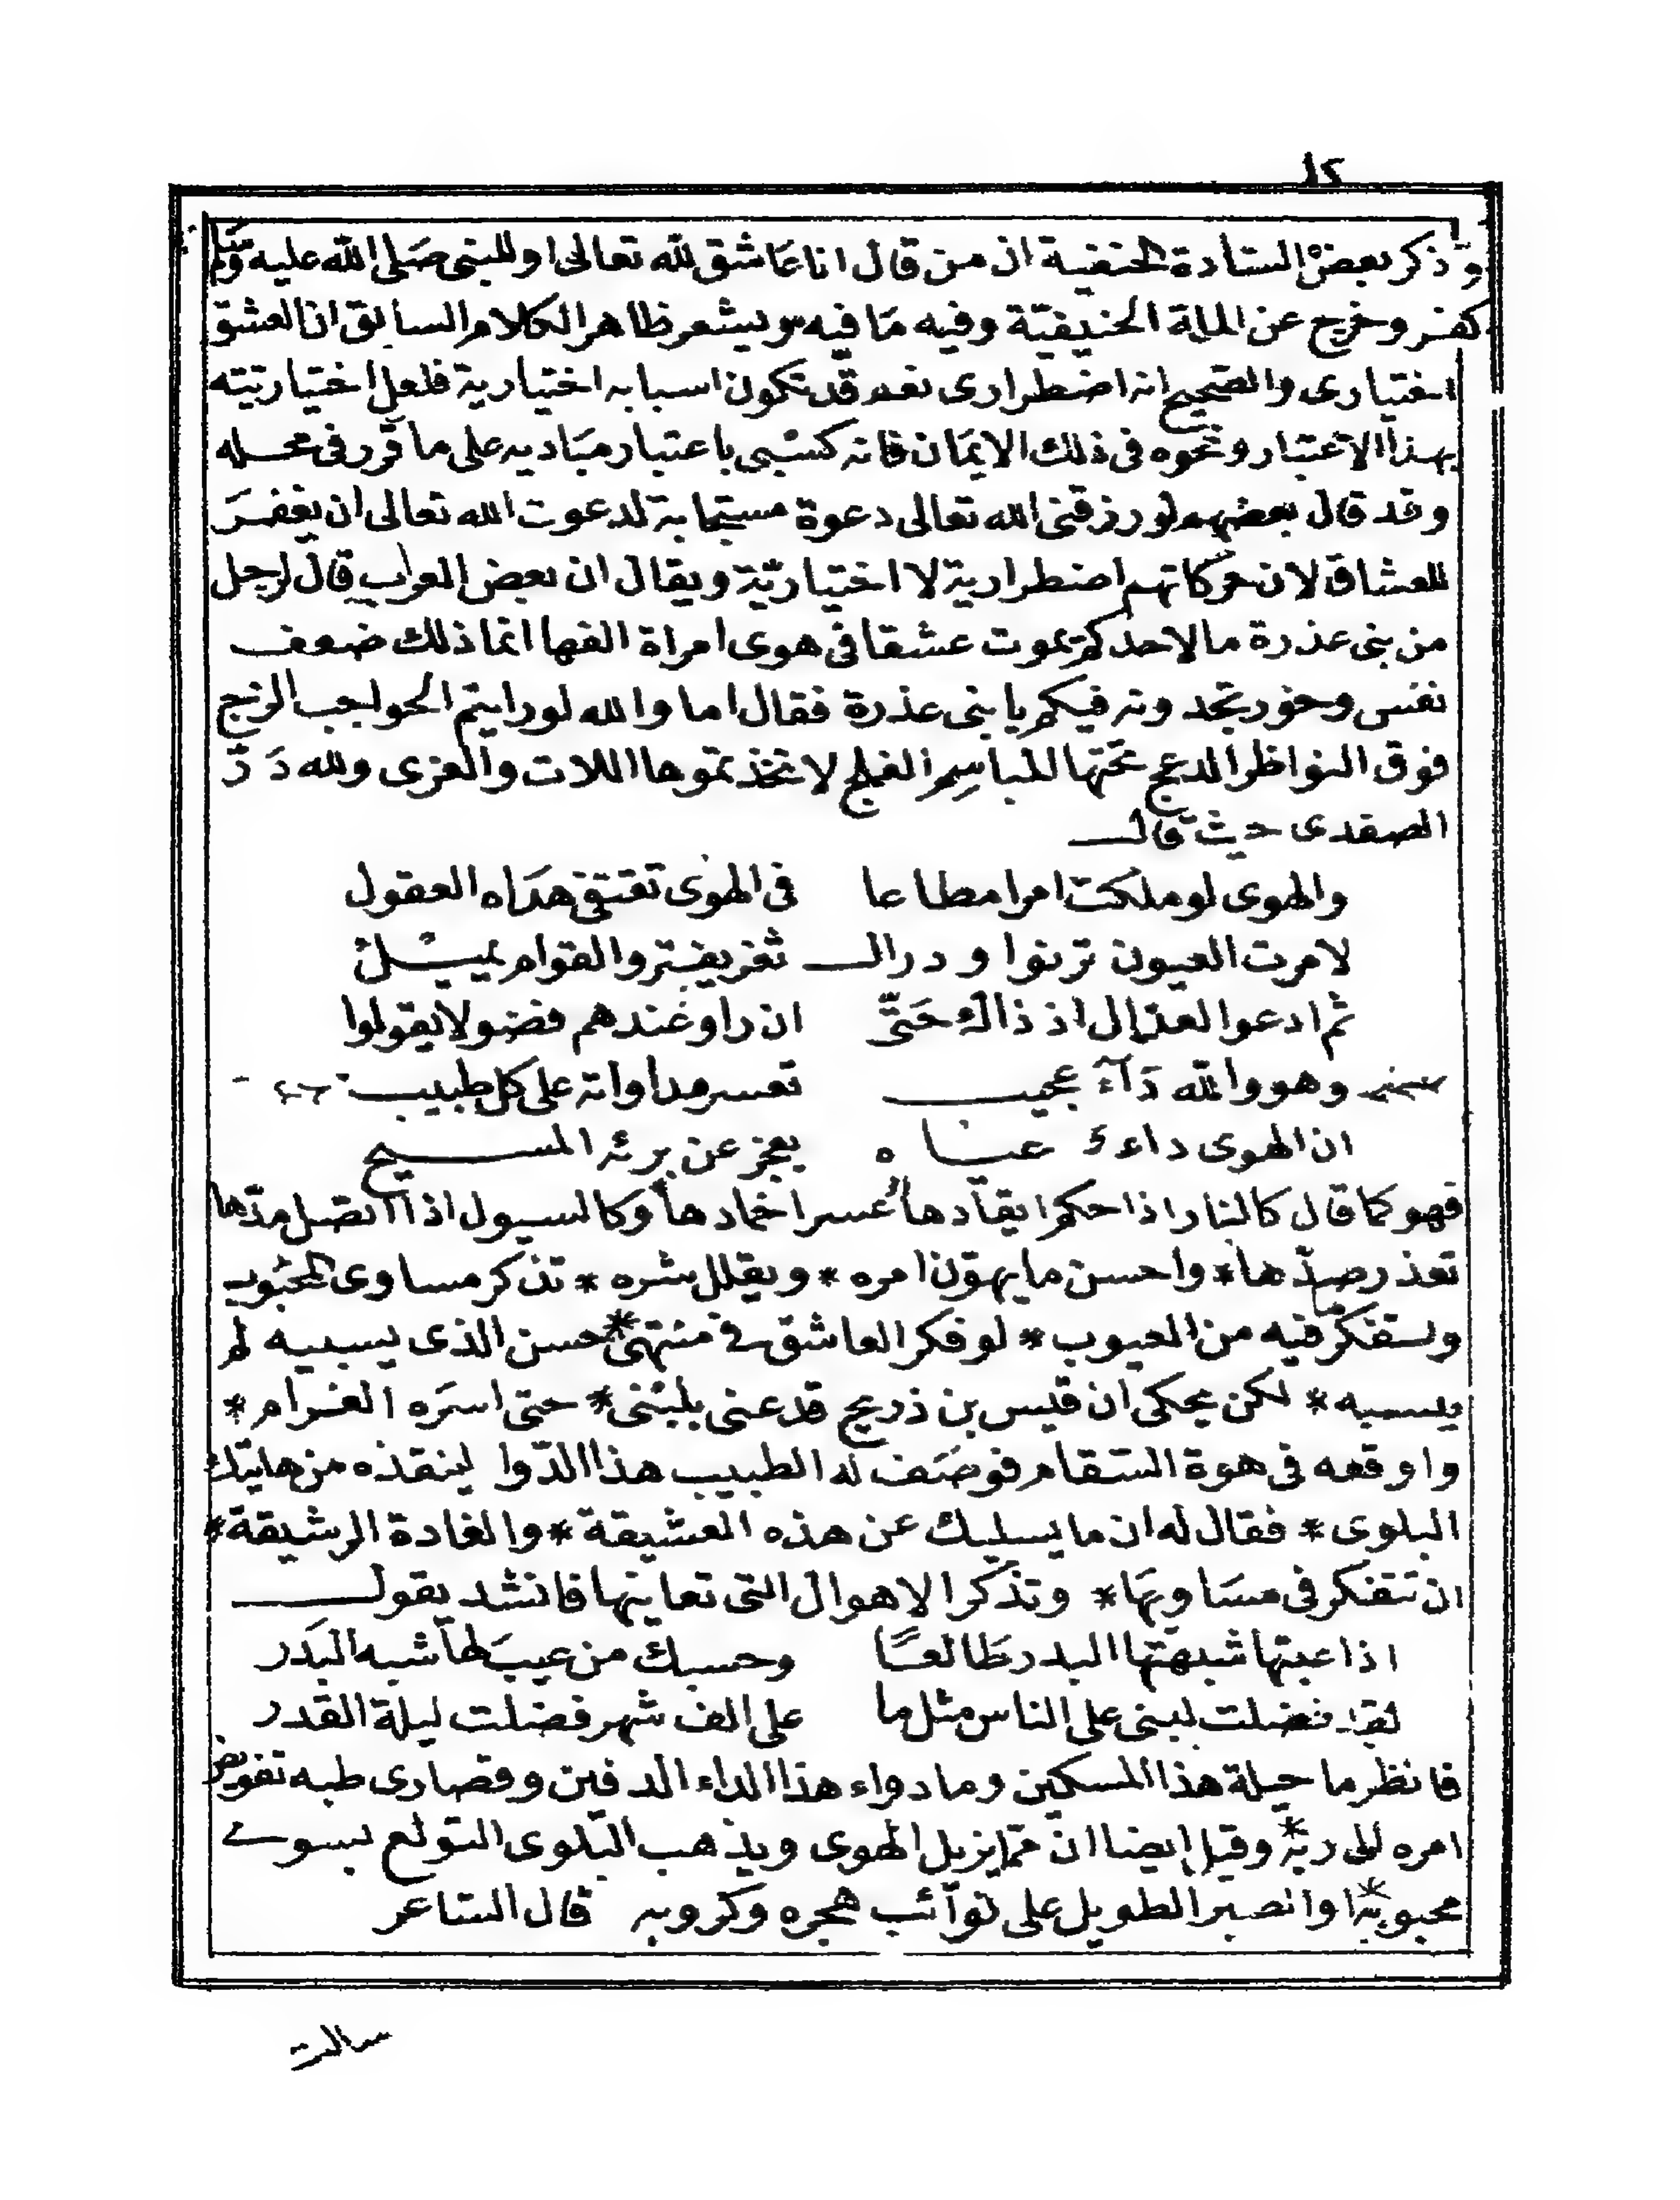 وذكر بعض السادة الحنفية ان من قال انا عاشق لله تعالى او للنبى صلى الله عليه وسلم
كفر وخرج عن الملة الحنيفية وفيه ما فيه ويشعر ظاهر الكلام السابق ان العشق
اختيارى والصحيح انه اضطرارى نعم قد تكون اسبابه اختيارية فلعل اختياريته
بهذا الاعتبار ونحوه فى ذلك الايمان فانه كسبى باعتبار مباديه على ما قرر فى محله
وقد قال بعضهم لو رزقنى الله تعالى دعوة مستجابة لدعوت الله تعالى ان يغفر
للعشاق لان حركاتهم اضطرارية لا اختيارية ويقال ان بعض العراب قال لرجل
من بنى عذرة ما لاحدكم يموت عشقا فى هوى امراة الفها انما ذلك ضعف
نفس وخور تجدونه فيكم يا بنى عذرة فقال اما والله لو رايتم الحواجب الزج
فوق النواظر الدعج تحتها المباسم الفلج لاتخذتموها اللات والعزى ولله در
الصفدى حيث قال
والهوى لو ملكت امرا مطاعا فى الهوى تقتفى هداه العقول
لامرت العيون ترنوا ودرالـ ثغر يفتر والقوام يميل
ثم ادعوا العذال اذ ذاك حتى ان راو عندهم فضولا يقولوا
وهو والله داء عجيب تعسر مداواته على كل طبيب
ان الهوى داء عياه يعجز عن برئه المسيح
فهو كما قال كالنار اذا حكم ايقادها عسر اخمادها وكالسيول اذا اتصل مدها
تعذر صدها * واحسن ما يهون امره * ويقلل شره * تذكر مساوى المحبوب
وليتفكر ما فيه من العيوب * لو فكر العاشق فى منتهى * حسن الذى يسبيه لم
يسبه * لكن يحكى ان قيس بن ذريح قد عنى بلبنى * حتى اسره الغرام *
واوقعه فى هوة السقام فوصف له الطبيب هذا الدوا لينقذه من هاتيك
البلوى * فقال له ان ما يسليك عن هذه العشيقة * والغادة الرشيقة *
ان تتفكر فى مساويها * وتذكر الاهوال التى تعاينها فانشد يقول
اذا عبتها شبهتها البدر طالعا وحسبك من عيب لها شبه البدر
لقد فضلت لبنى على الناس مثل ما على الف شهر فضلت ليلة القدر
فانظر ما حيلة هذا المسكين وما دواء هذا الداء الدفين وقصارى طبه تفويض
امره الى ربه * وقيل ايضا ان مما يزيل الهوى ويذهب البلوى التولع بسوى
محبوبه * او الصبر الطويل على نوائب هجره وكروبه قال الشاعر